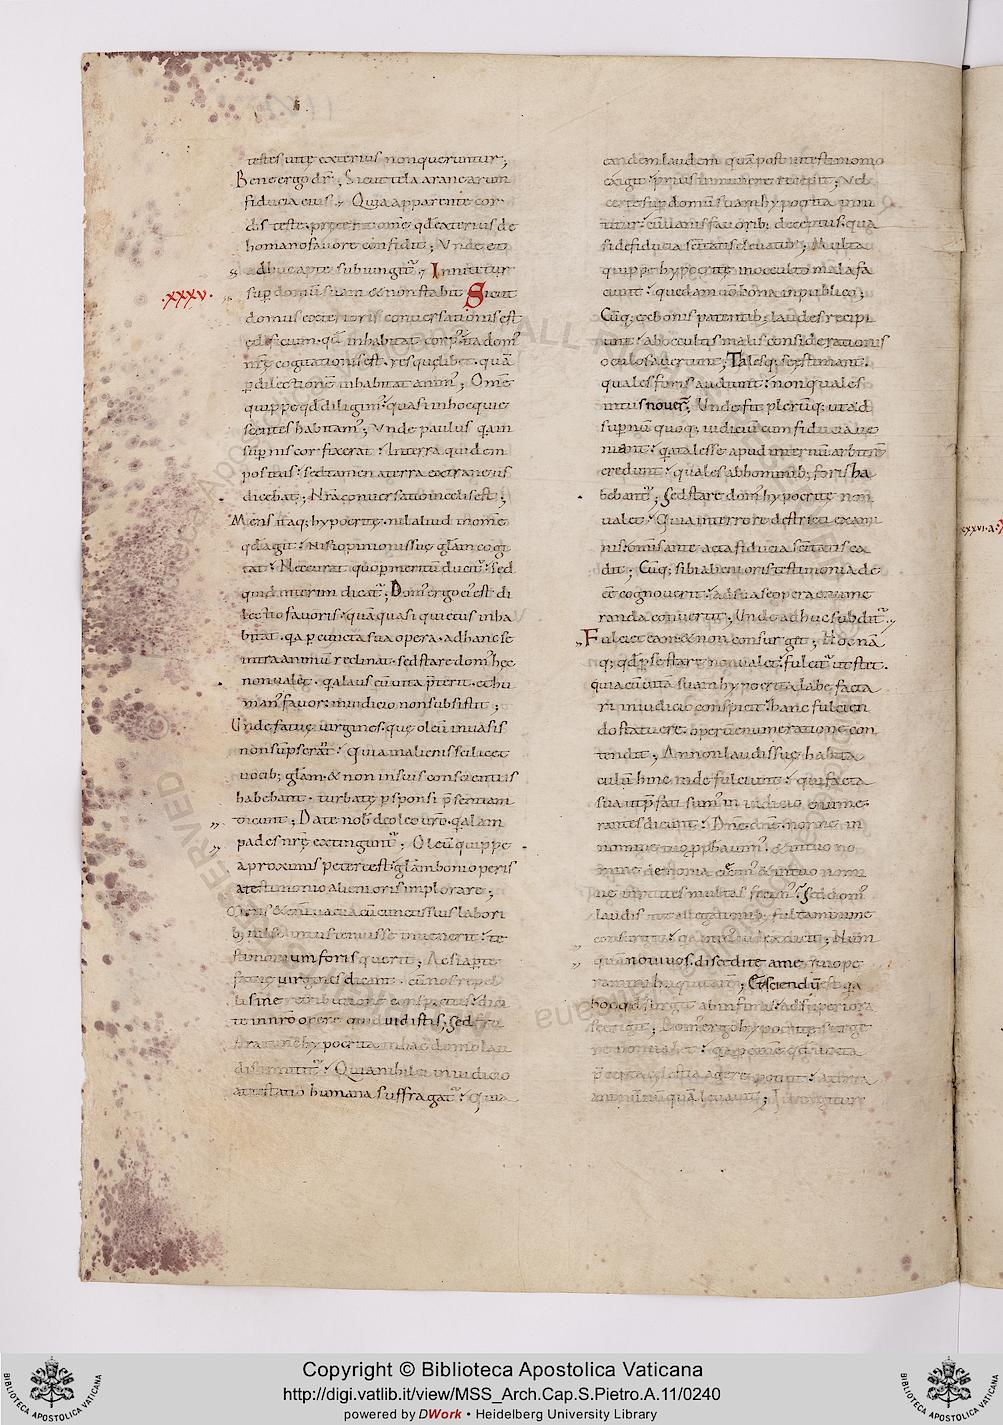 testes uitę exterius non queruntur;
Bene ergo dr̄; Sicut tela aranearum
fiducia eius. Quia apparente cor-
dis teste. protentione qđ exterius de
homano fauore confidit; Vnde et
adhuc apte subiungit᷑. Innitetur
.xxxv.
sup domū suam & non stabit Sicut
domus exterioris conuersationis est
ędificium. qđ inhabitat corp᷒. ita dom᷒
nr̄ę cogitationis est. res quęlibet. quā
p dilectionē inhabitat anim᷒; Omē
quippe qđ diligim᷒. quasi in hoc quie
scentes habitam᷒; Vnde paulus q̄a in
sup̄nis cor fixerat. In terra quidem
positus. sed tamen a terra extraneus
dicebat; Nr̄a conuersatio in cęlis est;
Mens itaq; hypocritę. nil aliud in om̄e
qđ agit. nisi opinionis suę glām cogi
tat. Nec curat quo p meritum ducit᷑. sed
quid interim dicat᷑; Dom᷒ ergo ei᷒ est di
lectio fauoris. quā quasi quietus inha
bitat. q̄a p cuncta sua opera. ad hanc se
intra animū reclinat. sed stare dom᷒ hęc
non ualet. q̄a laus cū uita p̄terit. et hu
man᷒ fauor in iudicio non subsistit;
Unde fatuę uirgines. quę oleū in uasis
non sūpserāt. quia in alienis scilicet
uocib; glām. & non in suis conscientiis
habebant. turbatę p sponsi p̄sentiam
dicunt; Date nob̄ de oleo ur̄o. q̄a lam
pades nr̄ę extingunt᷑; Oleū quippe
a proximis petere est. glām boni operis
a testimonio alieni oris implorare;
Mens &enī uacua cū cunctis suis labori
b; nihil intus tenuisse inuenerit. te
stimonium foris querit; Ac si apte
fatuę uirgines dicant. cū nos repel
li sine retributione conspicitis. dici
te in nr̄o opere quid uidistis; Sed fru
stra tunc hypocrita in hac domo lau
dis innitit᷑. Quia nihil ei in iudicio
attestatio humana suffragat᷑. Quia
eandem laudem quā post in testimonio
exigit. prius in munere recepit; Vel
certe sup domum suam hypocrita inni
titur. cū uanis fauorib; deceptus. qua
si de fiducia sc̄itatis eleuatur; Multa
quippe hypocritę in occulto mala fa
ciunt. quędam uō bona in publico;
Cūq; ex bonis patentib; laudes recipi
unt. ab occultis malis considerationis
oculos auertunt; Talesq; se ęstimant.
quales foris audiunt. non quales
intus nouer̄; Unde fit plerūq; ut ad
supnū quoq; iudiciū cum fiducia ue
niant. q̄a tales se apud internū arbitrū
credunt. quales ab hominib; foris ha
bebant᷑; Sed stare dom᷒ hypocritę non
ualet. Quia in terrore districti exami
nis. omīs ante acta fiducia sc̄itatis ca
dit; Cūq; sibi alieni oris testimonia de
eē cognouerit. ad sua se opera enume
randa conuertit; Unde adhuc subdit᷑.
Fulciet eam. & non consurget; Hoc nā
q; qđ p se stare non ualet. fulcit᷑ ut stet.
quia cū uitā suam hypocrita labefacta
ri in iudicio conspicit. hanc fulcien
do statuere. operū enumeratione con
tendit; An non laudis suę habita
culū hinc inde fulciunt. qui facta
sua ut p̄fati sum᷒ in iudicio enume
rantes dicunt. Dn̄e dn̄e. nonne in
nomine tuo p̄phauim᷒. & in tuo no
mine demonia eiecim᷒. & in tuo nomi
ne uirtutes multas fecim᷒. Sed dom᷒
laudis tot allegationib; fulta minime
consurgit. q̄a mox iudex dicit; Nūm
quā noui uos. discedite a me qui ope
ramini iniquitatē; Et sciendū est q̄a
hoc qđ surgit ab infimis. ad superiora
se erigit; Dom᷒ ergo hypocritę surge
re non ualet. q̄a p om̄e qđ iuxta
p̄cepta cęlestia agere potuit. a terra
animū nūquā leuauit; Iure igitur
Copyright © Biblioteca Apostolica Vaticana
http://digi.vatlib.it/view/MSS_Arch.Cap.S.Pietro.A.11/0240
powered by DWork • Heidelberg University Library
BIBLIOTECA APOSTOLICA VATICANA
BIBLIOTECA APOSTOLICA VATICANA